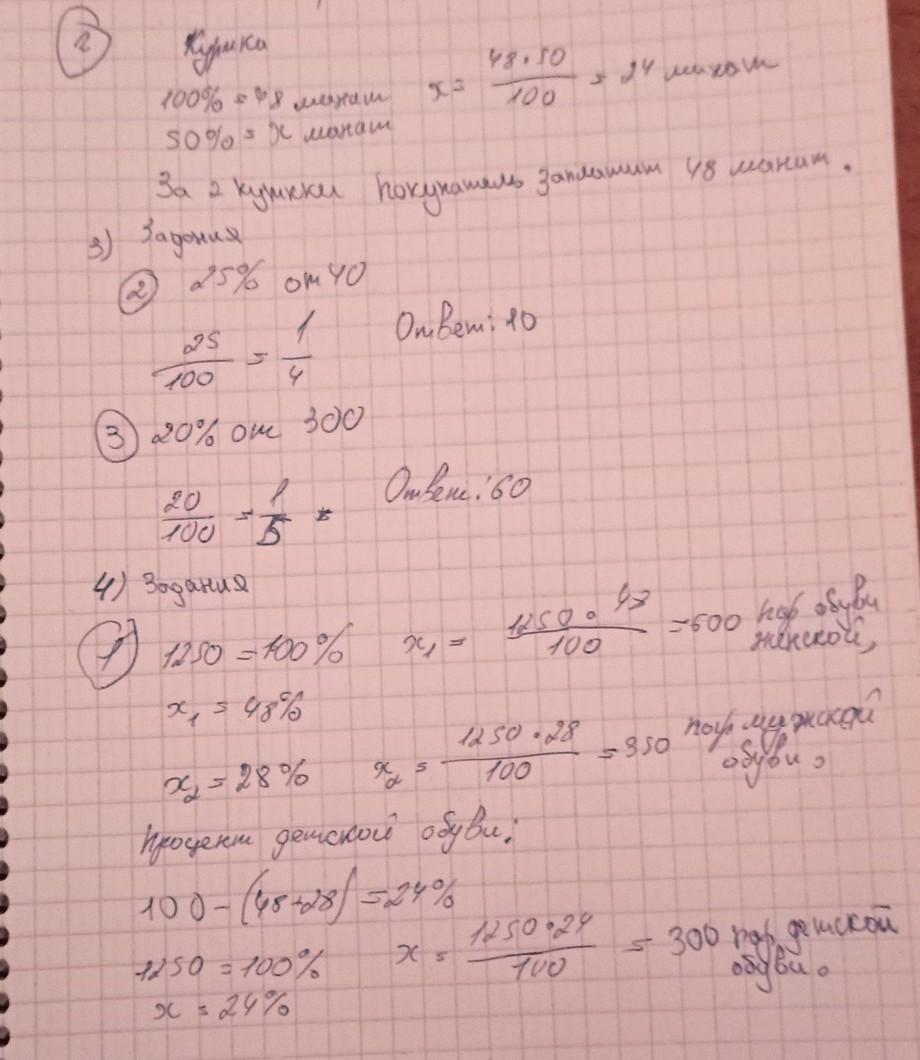 2
Куртка
100% = 48 манат x = 48·50/100 = 24 манат
50% = x манат
За 2 куртки покупатель заплатит 48 манат.
3) Задония
② 25% от 40
25/100 = 1/4 Ответ: 10
③ 20% от 300
20/100 = 1/5 Ответ: 60
4) Задания
① 1250 = 100% x₁ = 1250·48/100 = 600 пар обуви женской,
x₁ = 48%
x₂ = 28% x₂ = 1250·28/100 = 350 пар мужской обуви.
Процент детской обуви:
100 - (48+28) = 24%
1250 = 100% x = 1250·24/100 = 300 пар детской обуви.
x = 24%